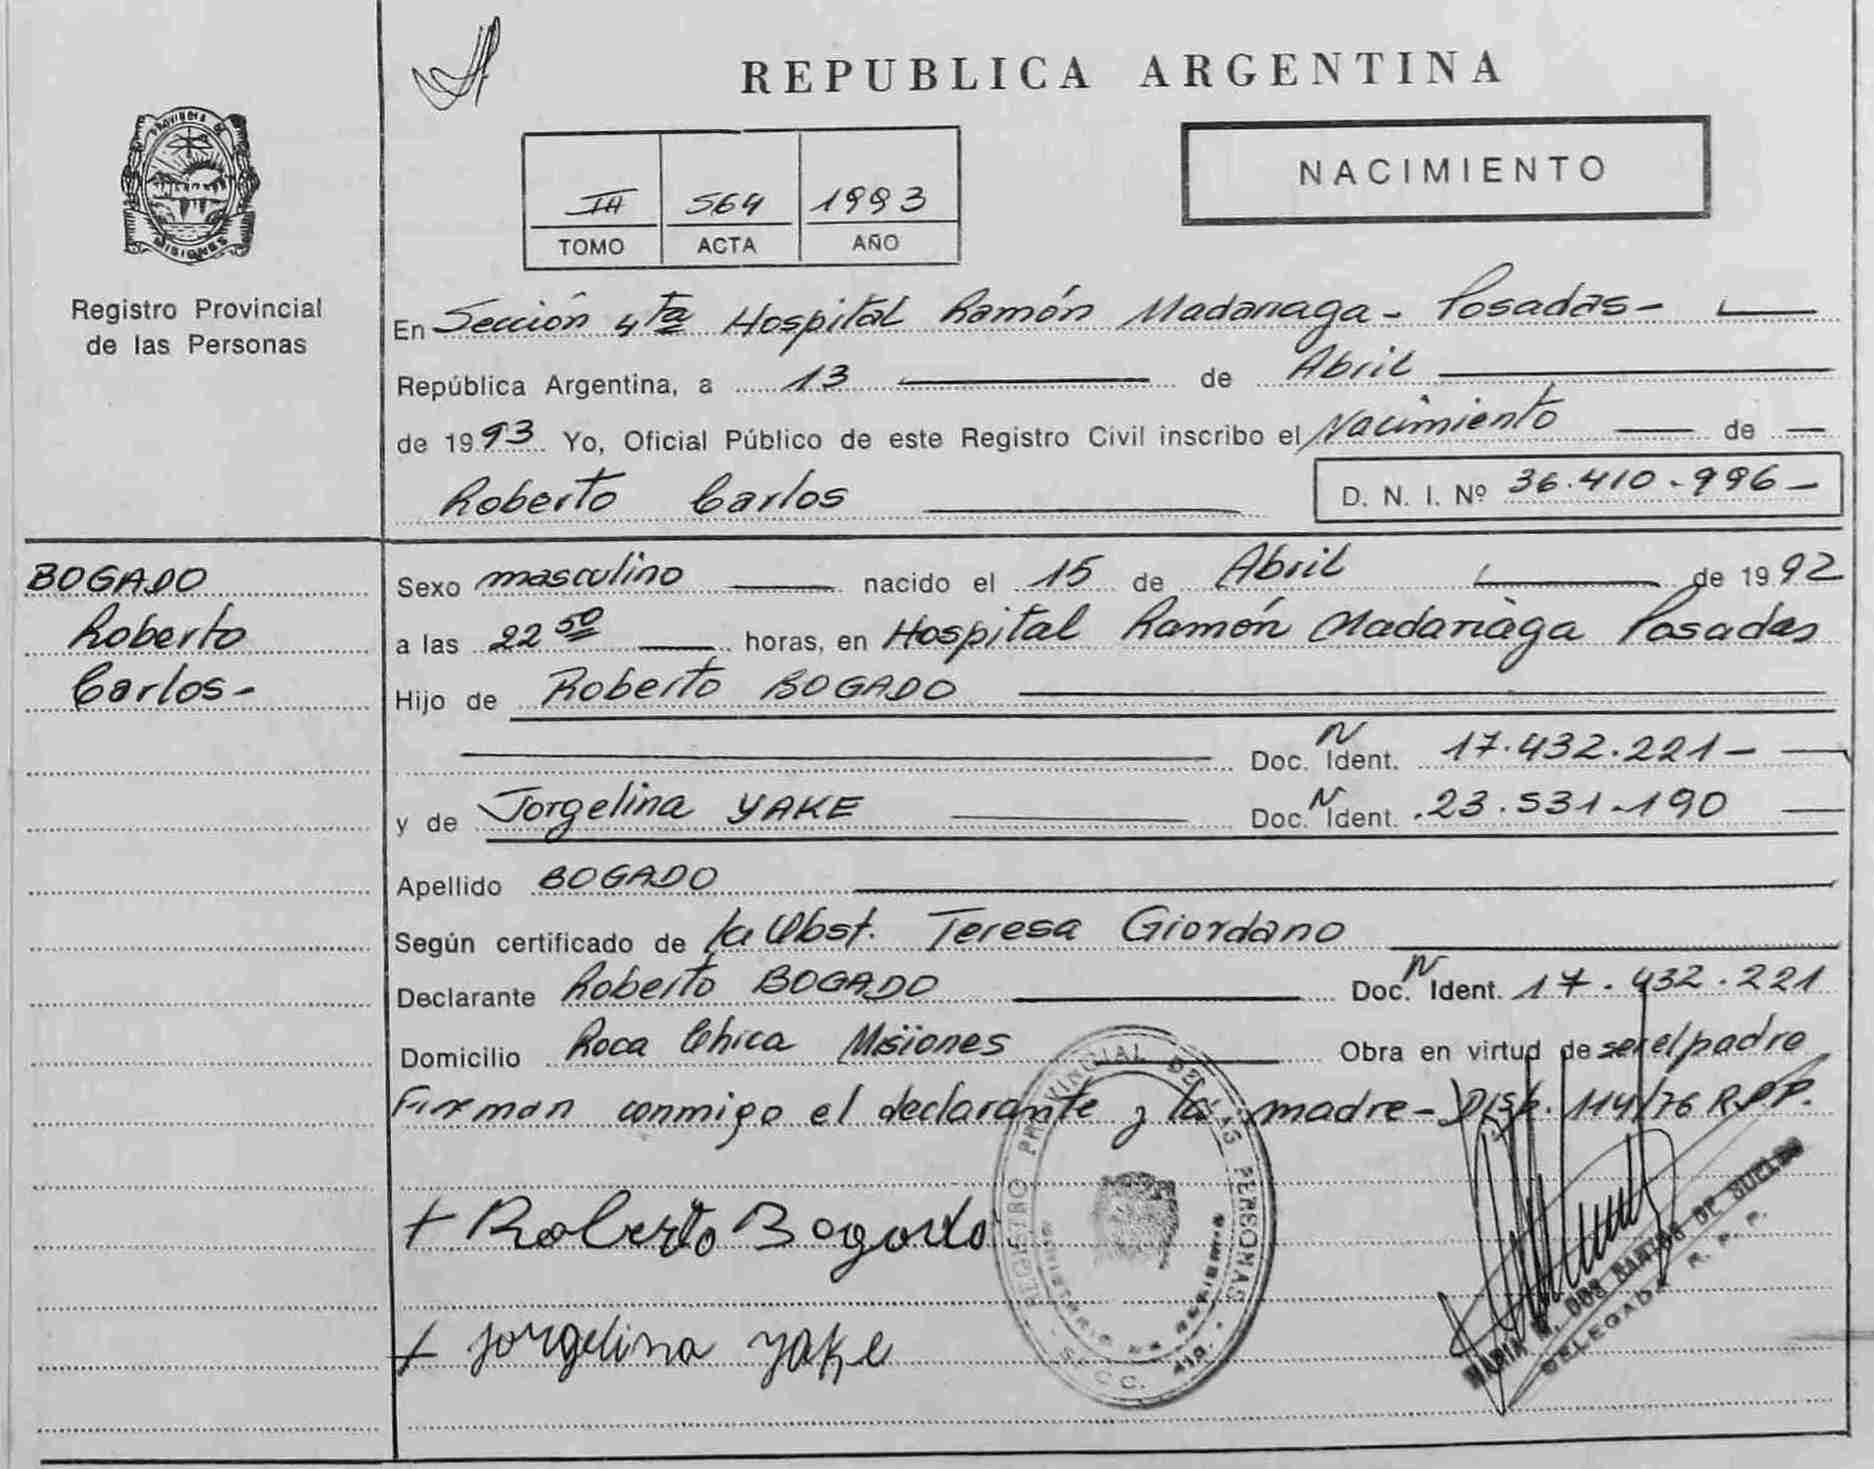 REPUBLICA ARGENTINA
PROVINCIA DE
MISIONES
Registro Provincial
de las Personas
III 564 1993
TOMO ACTA AÑO
NACIMIENTO
En Sección 4ta Hospital Ramón Madariaga - Posadas -
República Argentina, a 13 de Abril
de 1993 Yo, Oficial Público de este Registro Civil inscribo el Nacimiento de
Roberto Carlos D. N. I. Nº 36.410.996 -
BOGADO
Roberto
Carlos -
Sexo masculino nacido el 15 de Abril de 1992
a las 22 50 horas, en Hospital Ramón Madariaga Posadas
Hijo de Roberto BOGADO
Doc. N Ident. 17.432.221 -
y de Jorgelina YAKE Doc. N Ident. 23.531.190
Apellido BOGADO
Según certificado de la Obst. Teresa Giordano
Declarante Roberto BOGADO Doc. N Ident. 17.432.221
Domicilio Roca Chica Misiones Obra en virtud de ser el padre
Firman conmigo el declarante y la madre - Disp. 114/76 R.P.P.
+ Roberto Bogado
+ Jorgelina Yake
REGISTRO PROVINCIAL DE LAS PERSONAS
MINISTERIO DE GOBIERNO
SECC. 4ta.
MARIA DOS SANTOS DE SUELDO
DELEGADA R. P. P.